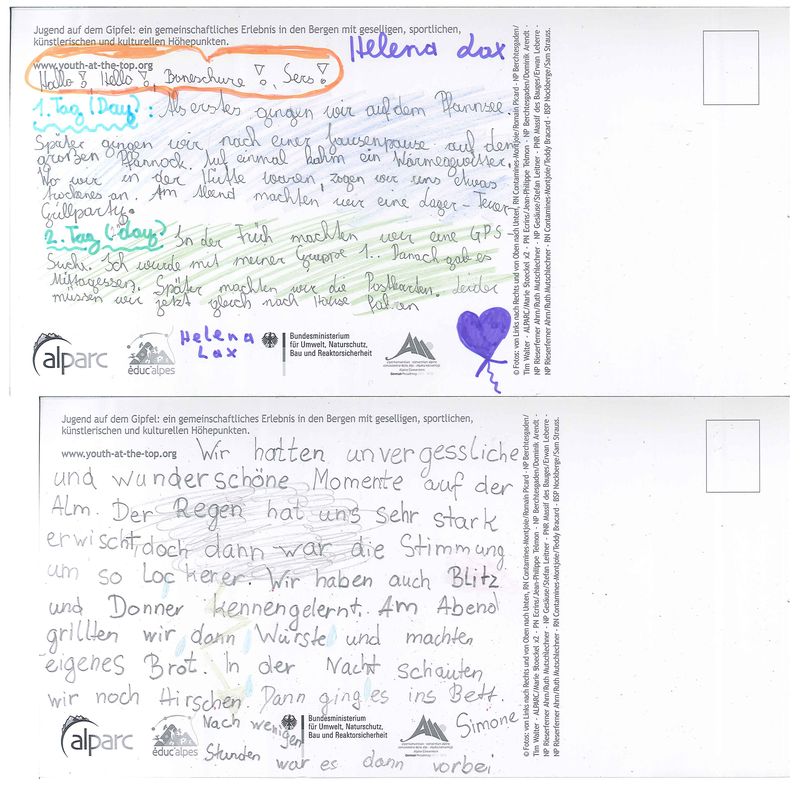 Jugend auf dem Gipfel: ein gemeinschaftliches Erlebnis in den Bergen mit geselligen, sportlichen,
künstlerischen und kulturellen Höhepunkten.
www.youth-at-the-top.org
Helena Lax
Hallo!, Hello!, Boneschure!, Sers!
1. Tag (Day): Als erstes gingen wir auf dem Pfannsee.
Später gingen wir nach einer Jausenpause auf den
großen Pfannock. Auf einmal kahm ein Wärmegewitter.
Wo wir in der Hütte waren, zogen wir uns etwas
trockenes an. Am Abend machten wir eine Lager-Feuer-
Grillparty.
2. Tag (day) In der Früh machten wir eine GPS
Suche. Ich wurde mit meiner Gruppe 1.. Danach gab es
Mittagessen. Später machten wir die Postkarten. Leider
müssen wir jetzt gleich nach Hause fahren
Helena
Lax
alparc
éduc'alpes
Bundesministerium
für Umwelt, Naturschutz,
Bau und Reaktorsicherheit
© Fotos: von Links nach Rechts und von Oben nach Unten, RN Contamines-Montjoie/Romain Picard - NP Berchtesgaden/
Tim Walter - ALPARC/Marie Stoeckel x2 - PN Ecrins/Jean-Philippe Telmon - NP Berchtesgaden/Dominik Arendt -
NP Rieserferner Ahrn/Ruth Mutschlechner - NP Gesäuse/Stefan Leitner - PNR Massif des Bauges/Erwan Leberre -
NP Rieserferner Ahrn/Ruth Mutschlechner - RN Contamines-Montjoie/Teddy Bracard - BSP Nockberge/Sam Strauss.
Jugend auf dem Gipfel: ein gemeinschaftliches Erlebnis in den Bergen mit geselligen, sportlichen,
künstlerischen und kulturellen Höhepunkten.
www.youth-at-the-top.org
Wir hatten unvergessliche
und wunderschöne Momente auf der
Alm. Der Regen hat uns sehr stark
erwischt, doch dann war die Stimmung
um so Lockerer. Wir haben auch Blitz
und Donner kennengelernt. Am Abend
grillten wir dann Würste und machten
eigenes Brot. In der Nacht schauten
wir noch Hirschen. Dann ging es ins Bett.
Nach wenigen
Stunden war es dann vorbei
Simone
alparc
éduc'alpes
Bundesministerium
für Umwelt, Naturschutz,
Bau und Reaktorsicherheit
© Fotos: von Links nach Rechts und von Oben nach Unten, RN Contamines-Montjoie/Romain Picard - NP Berchtesgaden/
Tim Walter - ALPARC/Marie Stoeckel x2 - PN Ecrins/Jean-Philippe Telmon - NP Berchtesgaden/Dominik Arendt -
NP Rieserferner Ahrn/Ruth Mutschlechner - NP Gesäuse/Stefan Leitner - PNR Massif des Bauges/Erwan Leberre -
NP Rieserferner Ahrn/Ruth Mutschlechner - RN Contamines-Montjoie/Teddy Bracard - BSP Nockberge/Sam Strauss.